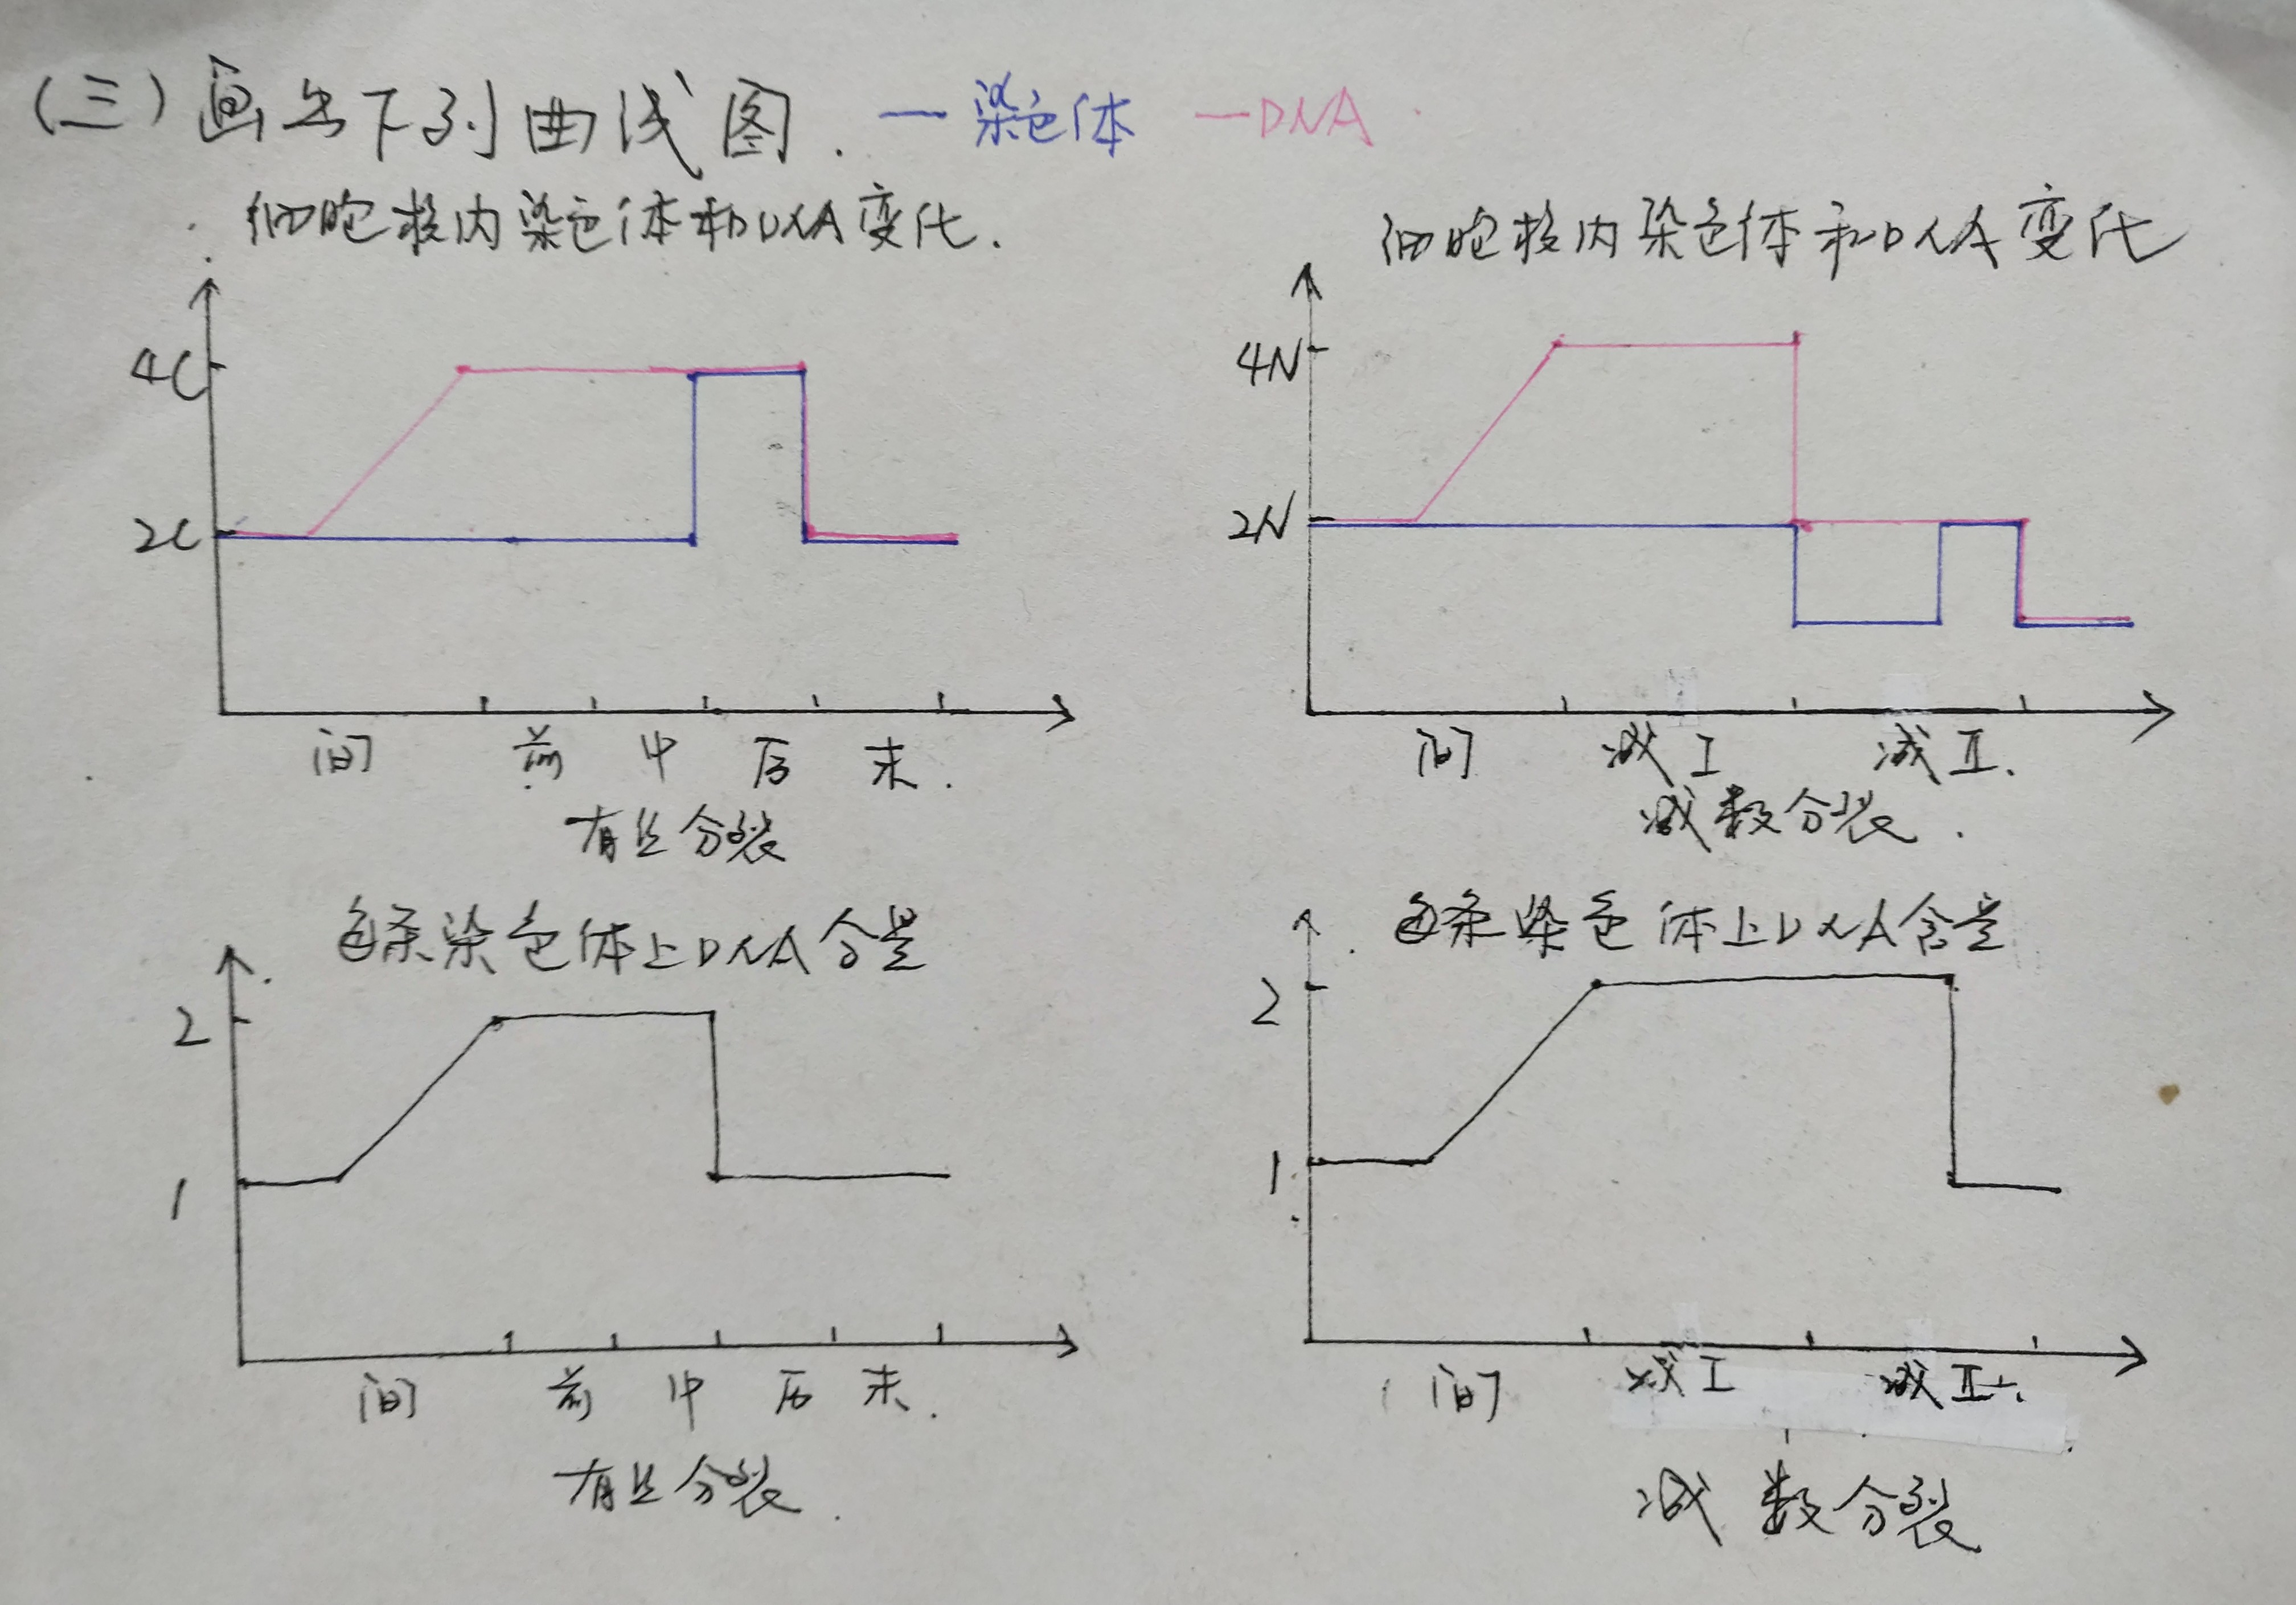 (三)画出下列曲线图. —染色体 —DNA
细胞核内染色体和DNA变化.
4C
2C
间 前 中 后 末.
有丝分裂
细胞核内染色体和DNA变化
4N
2N
间 减I 减II.
减数分裂.
每条染色体上DNA含量
2
1
间 前 中 后 末.
有丝分裂.
每条染色体上DNA含量
2
1
间 减I 减II.
减数分裂